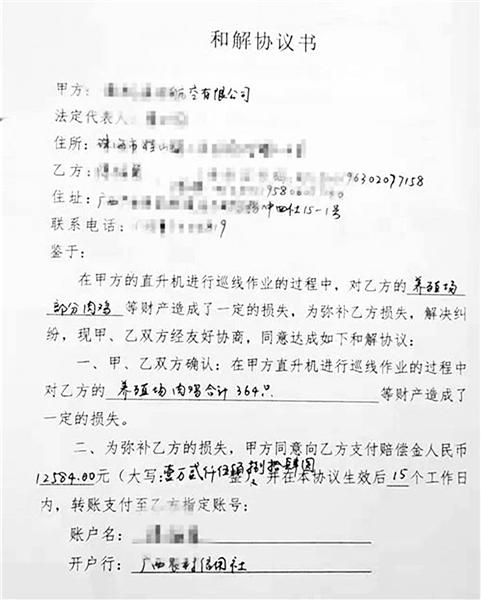 和解协议书
甲方： 航空有限公司
法定代表人：
住所：珠海市
乙方： 96302097158
住址：广西 冲四社15-1号
联系电话： 9
鉴于：
在甲方的直升机进行巡线作业的过程中，对乙方的 养殖场
部分肉鸡 等财产造成了一定的损失，为弥补乙方损失，解决纠
纷，现甲、乙双方经友好协商，同意达成如下和解协议：
一、甲、乙双方确认：在甲方直升机进行巡线作业的过程中
对乙方的 养殖场肉鸡合计364只 等财产造成了
一定的损失。
二、为弥补乙方的损失，甲方同意向乙方支付赔偿金人民币
12584.00元（大写：壹万贰仟伍佰捌拾肆圆整）并在本协议生效后15个工作日
内，转账支付至乙方指定账号：
账户名：
开户行：广西农村信用社